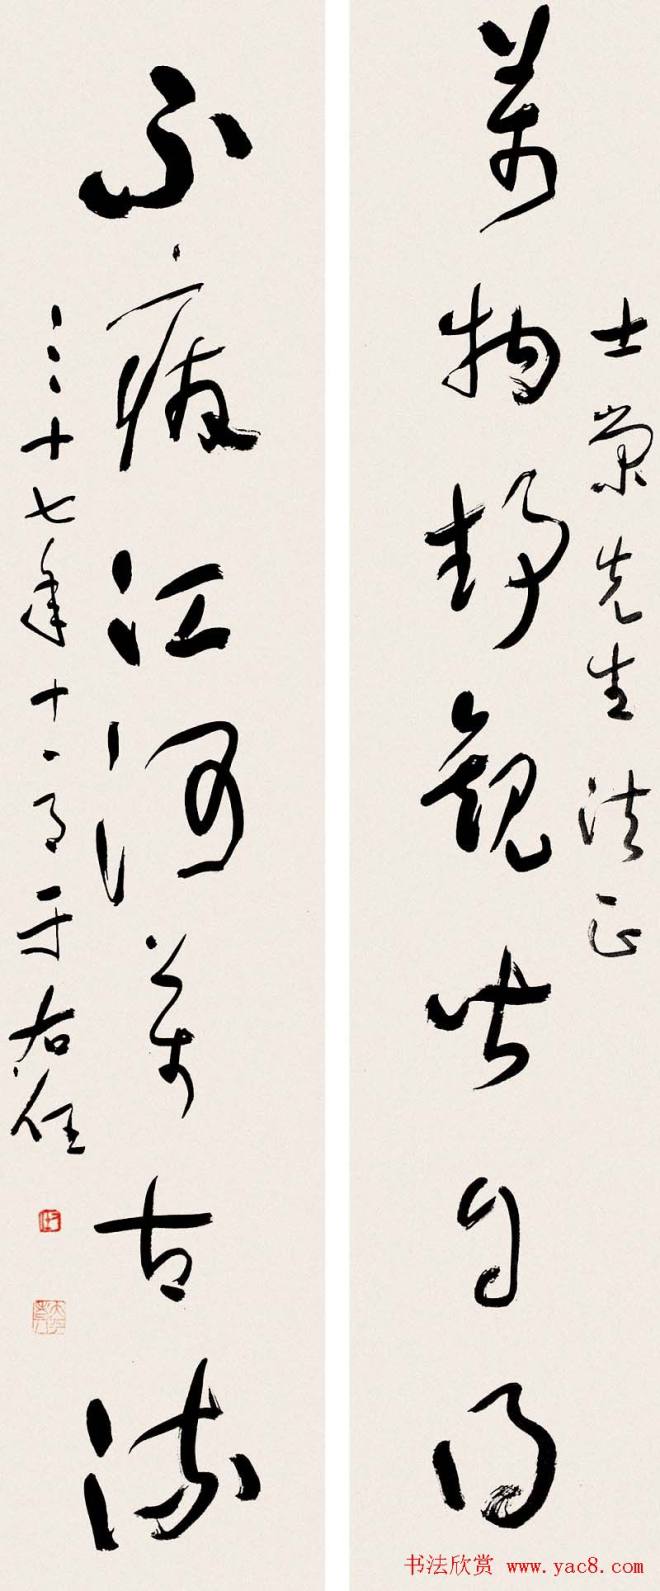 士榮先生法正
萬物靜觀皆自得
不廢江河萬古流
三十七年十一月于右任
书法欣赏 www.yac8.com